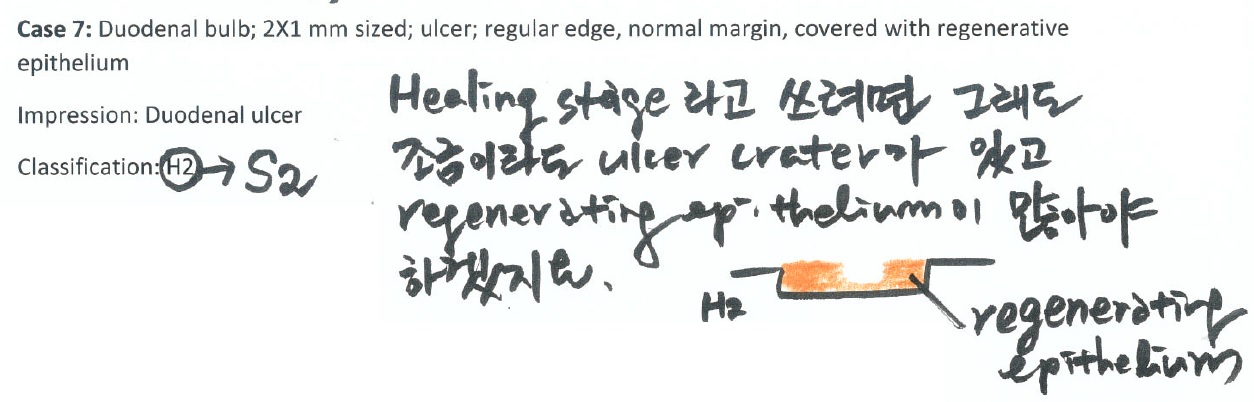 Case 7: Duodenal bulb; 2X1 mm sized; ulcer; regular edge, normal margin, covered with regenerative
epithelium
Impression: Duodenal ulcer
Classification: H2 → S2
Healing stage 라고 쓰려면 그래도
조금이라도 ulcer crater가 있고
regenerating epithelium이 많아야
하겠지요.
H2
regenerating
epithelium